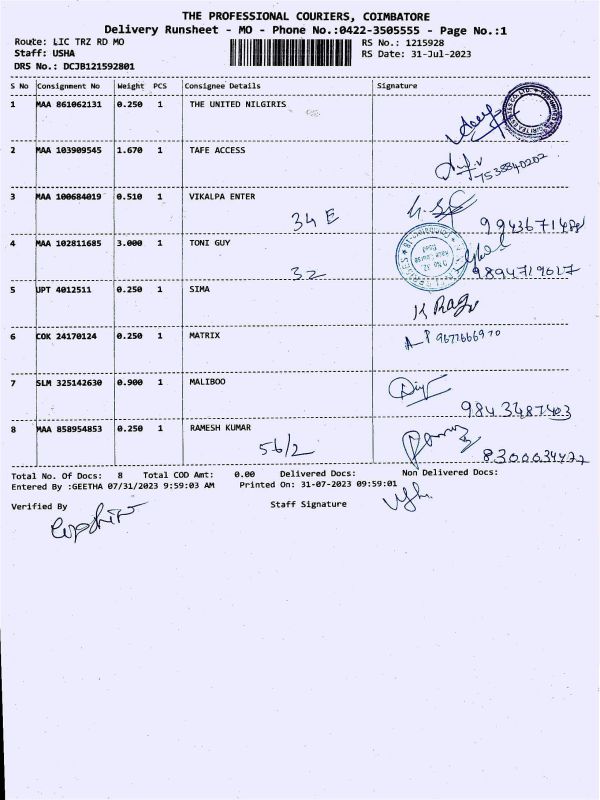 THE PROFESSIONAL COURIERS, COIMBATORE
Delivery Runsheet - MO - Phone No.:0422-3505555 - Page No.:1
Route: LIC TRZ RD MO RS No.: 1215928
Staff: USHA RS Date: 31-Jul-2023
DRS No.: DCJB121592801
S No Consignment No Weight PCS Consignee Details Signature
1 MAA 861062131 0.250 1 THE UNITED NILGIRIS
2 MAA 103909545 1.670 1 TAFE ACCESS
7538840202
3 MAA 100684019 0.510 1 VIKALPA ENTER
34 E
4 MAA 102811685 3.000 1 TONI GUY
32 9894719017
5 UPT 4012511 0.250 1 SIMA
K Raga
6 COK 24170124 0.250 1 MATRIX
9677666970
7 SLM 325142630 0.900 1 MALIBOO
9843487403
8 MAA 858954853 0.250 1 RAMESH KUMAR
56/2
Total No. Of Docs: 8 Total COD Amt: 0.00 Delivered Docs: Non Delivered Docs:
Entered By :GEETHA 07/31/2023 9:59:03 AM Printed On: 31-07-2023 09:59:01
Verified By Staff Signature